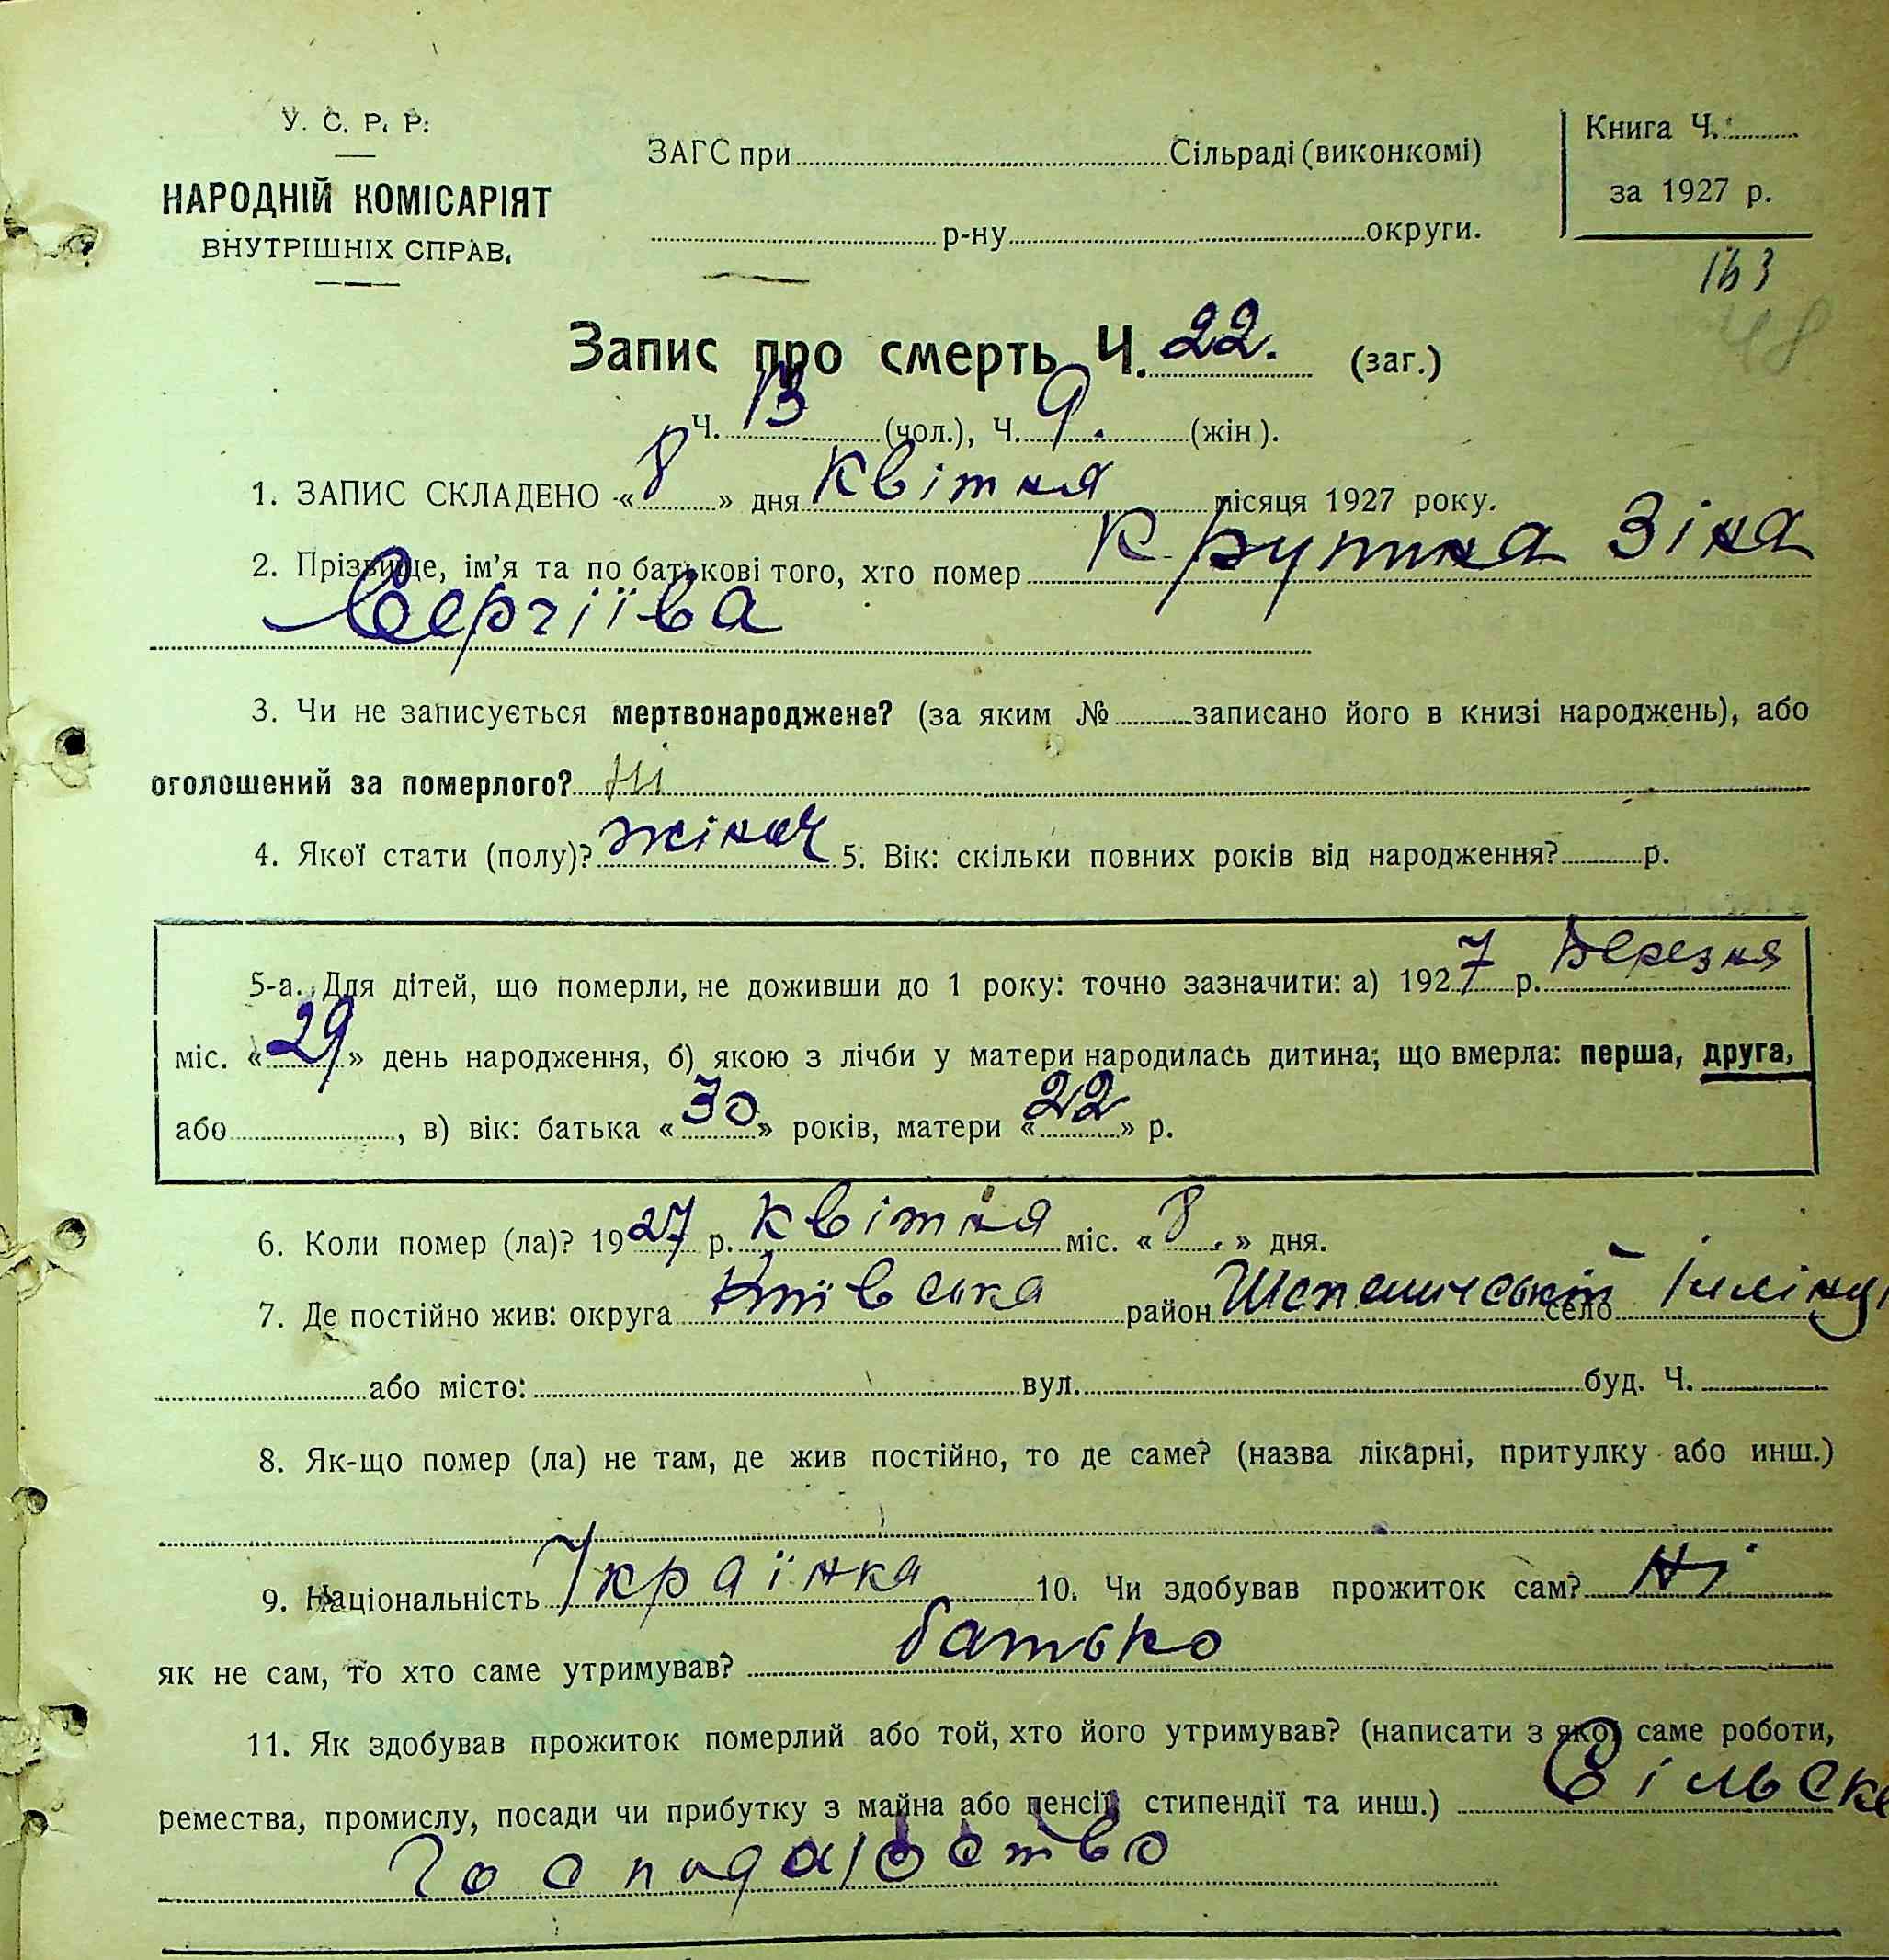 У. С. Р. Р.
НАРОДНІЙ КОМІСАРІЯТ
ВНУТРІШНІХ СПРАВ.
ЗАГС при Сільраді (виконкомі)
р-ну округи.
Книга Ч.
за 1927 р.
163
48
Запис про смерть Ч. 22. (заг.)
Ч. 13 (чол.), Ч. 9. (жін).
1. ЗАПИС СКЛАДЕНО «8» дня Квітня місяця 1927 року.
2. Прізвище, ім'я та по батькові того, хто помер Крупка Зіна
Сергіїва
3. Чи не записується мертвонароджене? (за яким № записано його в книзі народжень), або
оголошений за померлого? Ні
4. Якої стати (полу)? жіноч 5. Вік: скільки повних років від народження? р.
5-а. Для дітей, що померли, не доживши до 1 року: точно зазначити: а) 1927 р. Березня
міс. «29» день народження, б) якою з лічби у матери народилась дитина; що вмерла: перша, друга,
або , в) вік: батька «30» років, матери «22» р.
6. Коли помер (ла)? 1927 р. Квітня міс. «8.» дня.
7. Де постійно жив: округа Київська район село
або місто: вул. буд. Ч.
8. Як-що помер (ла) не там, де жив постійно, то де саме? (назва лікарні, притулку або инш.)
9. Національність Українка 10. Чи здобував прожиток сам? Ні
як не сам, то хто саме утримував? батько
11. Як здобував прожиток померлий або той, хто його утримував? (написати з якої саме роботи,
ремества, промислу, посади чи прибутку з майна або пенсії, стипендії та инш.) Сільске
Господарство